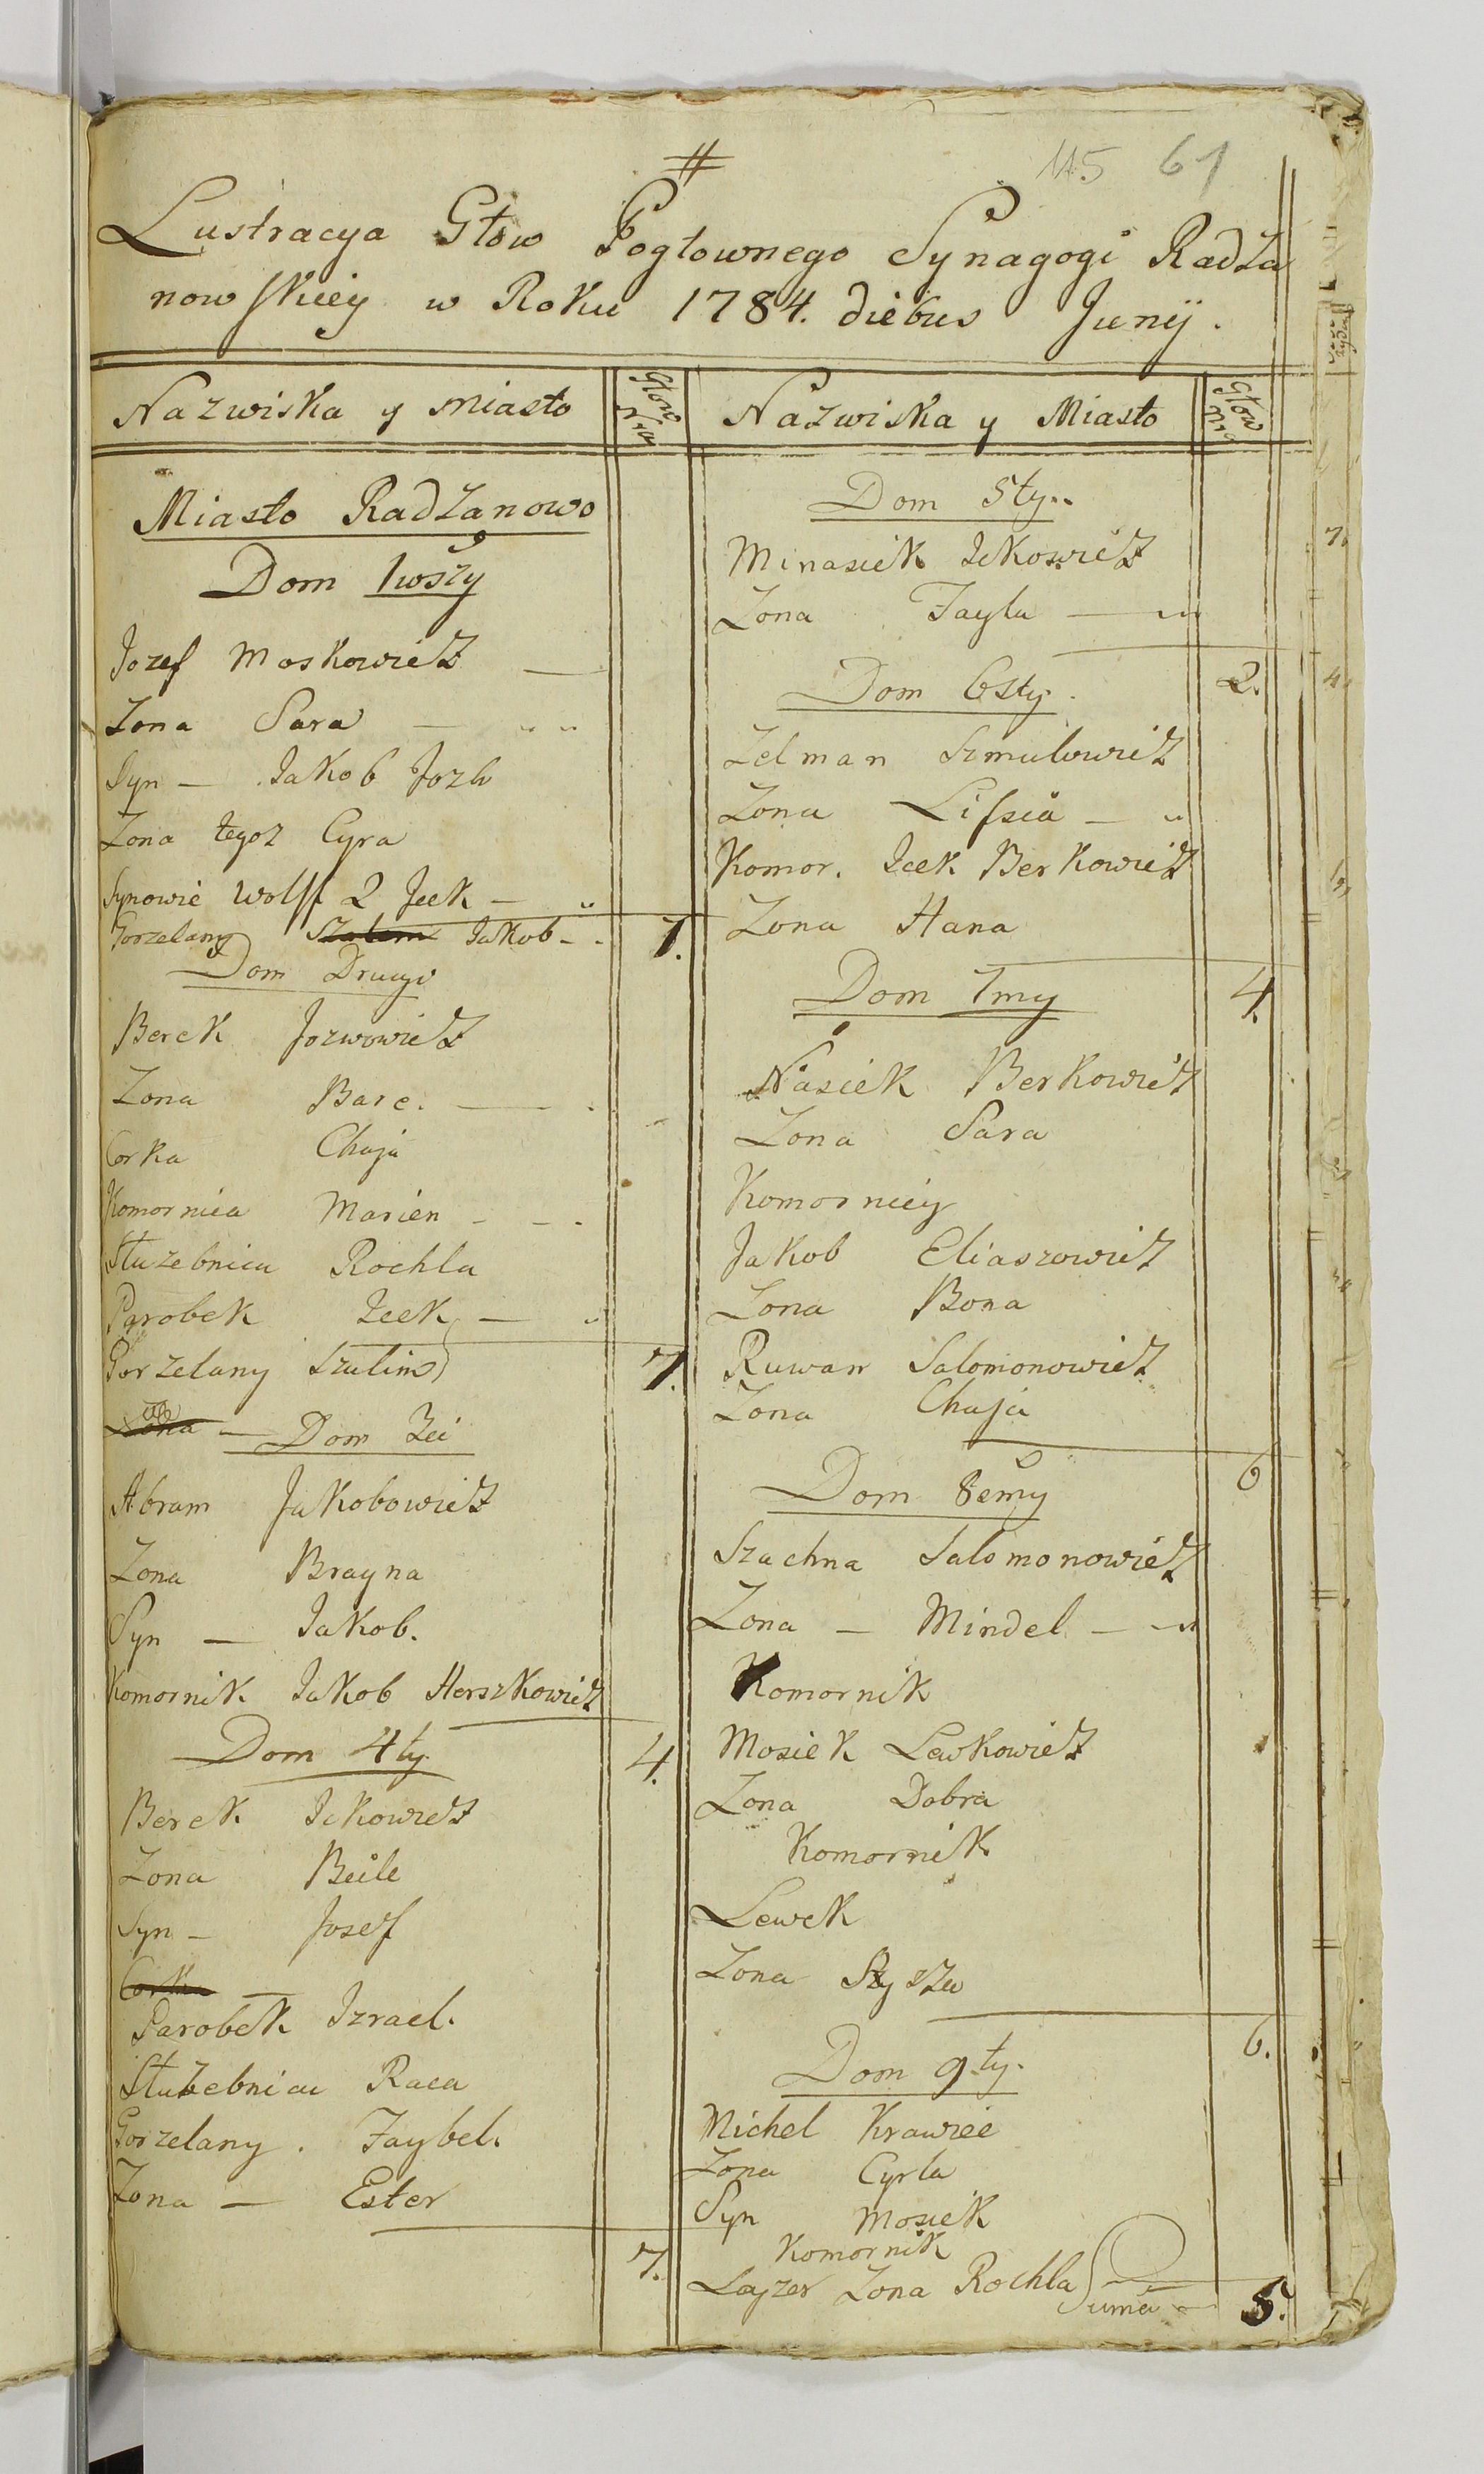 #
115 61
Lustracya Głow Pogłownego Synagogi Radza
nowskiey w Roku 1784. diebus Junij.
Nazwiska y miasto
Głow Nro
Miasto Radzanowo
Dom 1wszy
Jozef Moskowicz —
Zona Sara —
Syn — Jakob Jozb
Zona tegoz Cyra
Synowie Wolff 2 Jcek —
Gorzelany Szolem Jakob - - 7.
Dom Drugi
Berek Jozwowicz
Zona Bare. —
Corka Chaja
Komornica Marien - - -
Służebnica Rochla
Parobek Icek —
Gorzelany Szulim 7.
Zona — Dom 3ci
Abram Jakobowicz
Zona Brayna
Syn — Jakob.
Komornik Jakob Herszkowicz
4.
Dom 4ty.
Berek Ickowicz
Zona Beile
Syn — Josef
Corka —
Parobek Izrael.
Służebnica Raca
Gorzelany. Faybel.
Zona — Ester
7.
Nazwiska y Miasto
Głow Nro
Dom 5ty..
Minasiek Ickowicz
Zona Fayla —
2.
Dom 6sty.
Zelman Szmulowicz
Zona Lifsia —
Komor. Icek Berkowicz
Zona Hana
4.
Dom 7my
Nasiek Berkowicz
Zona Sara
Komornicy
Jakob Eliaszowicz
Zona Bona
Ruwan Salomonowicz
Zona Chaja
6
Dom 8smy
Szachna Salomonowicz
Zona — Mindel —
Komornik
Mosiek Lewkowicz
Zona Dobra
Komornik
Lewek
Zona
6.
Dom 9ty.
Michel Krawiec
Zona Cyrla
Syn Mosiek
Komornik
Layzer Zona Rochla
Suma — 5.